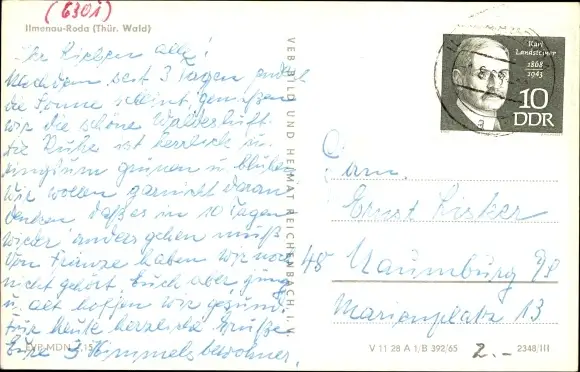 (6301)
Ilmenau-Roda (Thür. Wald)
Ihr Lieben alle!
Nachdem seit 3 Tagen endlich
die Sonne scheint, genießen
wir die schöne Waldesluft.
Die Ruhe ist herrlich u.
ringsum grünen u. blühen.
Wir wollen garnicht daran
denken daß es in 10 Tagen
wieder anders gehen muß
Von Franze haben wir noch
nicht gehört. Euch aber jung
u. alt hoffen wir gesund.
Für Heute herzliche Grüße
Eure 3 Himmelsbewohner.
EVP MDN 0,15
VEB BILD UND HEIMAT REICHENBACH I. V.
Karl
Landsteiner
1868
1943
10
DDR
Fam.
Ernst Lisker
48 Naumburg
Marienplatz 13
V 11 28 A 1/B 392/65
2.-
2348/III